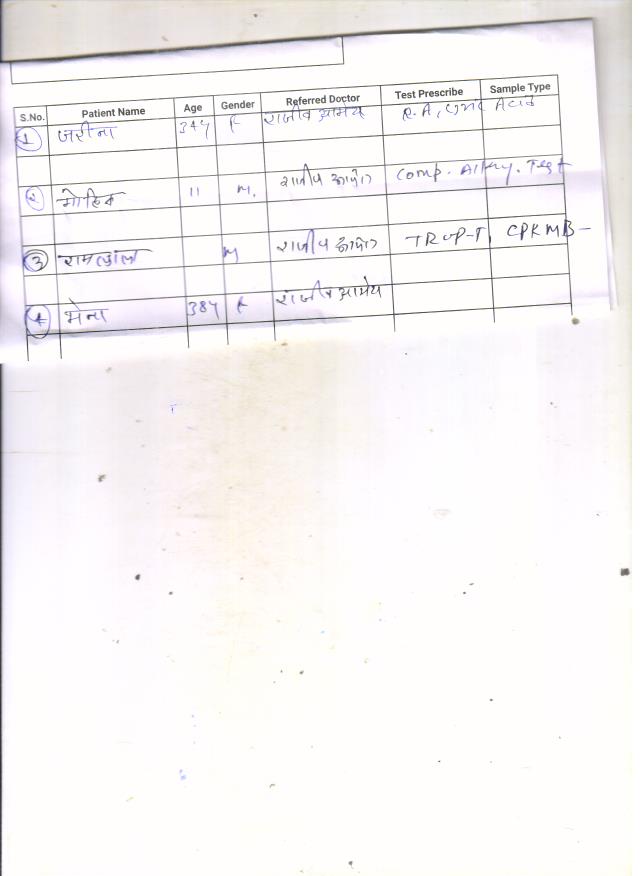 S.No. Patient Name Age Gender Referred Doctor Test Prescribe Sample Type
1 जरीना 34y F राजीव R.A, Uric Acid
2 मोहित 11 M. राजीव Comp. Test
3 रामलाल M राजीव TROP-T, CPKMB -
4 मैना 38y F राजीव